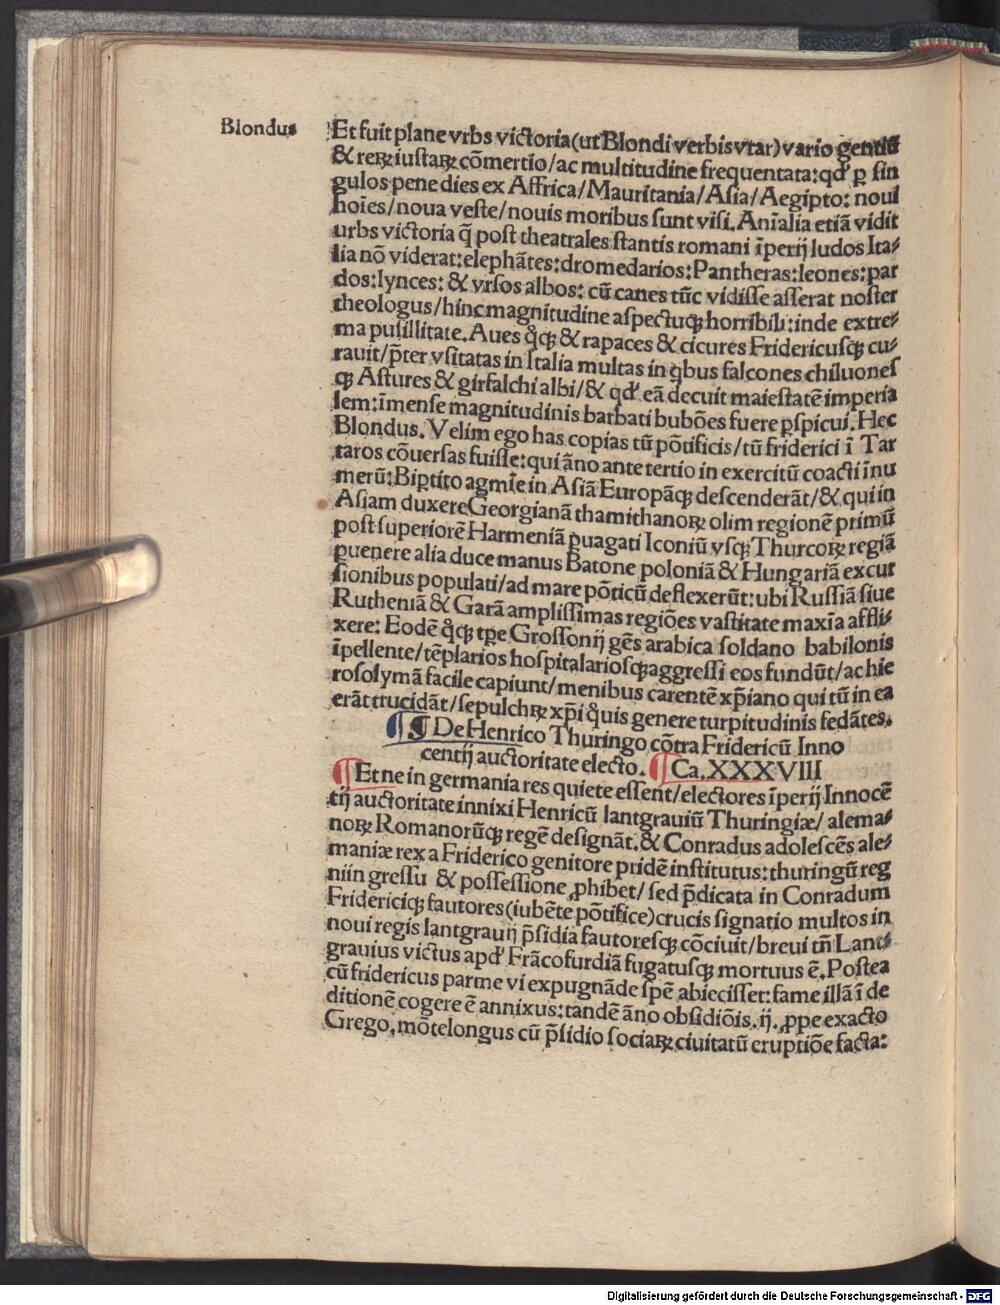 Blondus
Et fuit plane vrbs victoria (ut Blondi verbis vtar) vario gentiũ
& reꝝ iustaꝝ cõmertio/ac multitudine frequentata: qđ ꝑ sin
gulos pene dies ex Affrica/Mauritania/Asia/Aegipto: noui
hoies/noua veste/nouis moribus sunt visi. Aníalia etiã vidit
urbs victoria q̃ post theatrales stantis romani ĩperij ludos Ita⸗
lia nõ viderat: elephãtes: dromedarios: Pantheras: leones: par
dos: lynces: & vrsos albos: cũ canes tũc vidisse asserat noster
theologus/hinc magnitudine aspectuqꝫ horribili: inde extre⸗
ma pusillitate. Aues q̊qꝫ & rapaces & cicures Fridericusqꝫ cu⸗
rauit/p̃ter vsitatas in Italia multas in qbus falcones chiluones
qꝫ Astures & girfalchi albi/& qđ eã decuit maiestatẽ imperia
lem: ĩmense magnitudinis barbati bubões fuere ꝑspicui. Hec
Blondus. Velim ego has copias tũ põtificis/tũ friderici ĩ Tar
taros cõuersas fuisse: qui ãno ante tertio in exercitũ coacti ĩnu
merũ: Biꝑtito agmĩe in Asiã Europãqꝫ descenderãt/& qui in
Asiam duxere Georgianã thamithanoꝝ olim regionẽ primũ
post superiorẽ Harmeniã ꝑuagati Iconiũ vsqꝫ Thurcoꝝ regiã
ꝑuenere alia duce manus Batone poloniã & Hungariã excur
sionibus populati/ad mare põticũ deflexerũt: ubi Russiã siue
Rutheniã & Garã amplissimas regiões vastitate maxĩa affli⸗
xere: Eodẽ q̊qꝫ tꝑe Grossonij gẽs arabica soldano babilonis
ĩpellente/tẽplarios hospitalariosqꝫ aggressi eos fundũt/ac hie
rosolymã facile capiunt/menibus carentẽ xp̃iano qui tũ in ea
erãt trucidãt/sepulchꝝ xp̃i q̊uis genere turpitudinis fedãtes.
¶ De Henrico Thuringo cõtra Fridericũ Inno
centij auctoritate electo. Ca. XXXVIII
Et ne in germania res quiete essent/electores ĩperij Innocẽ
tij auctoritate innixi Henricũ lantgrauiũ Thuringiæ/alema⸗
noꝝ Romanorũqꝫ regẽ designãt. & Conradus adolescẽs ale⸗
maniæ rex a Friderico genitore pridẽ institutus: thuringũ reg
ni in gressu & possessione ꝓhibet/sed p̃dicata in Conradum
Fridericiqꝫ fautores (iubẽte põtifice) crucis signatio multos in
noui regis lantgrauij p̃sidia fautoresqꝫ cõciuit/breui tñ Lant⸗
grauius victus apđ Frãcofurdiã fugatusqꝫ mortuus ẽ. Postea
cũ fridericus parme vi expugnãde spẽ abiecisset: fame illã ĩ de
ditionẽ cogere ẽ annixus: tandẽ ãno obsidiõis. ij. ꝓpe exacto
Grego. mõtelongus cũ p̃sidio sociaꝝ ciuitatũ eruptiõe facta:
Digitalisierung gefördert durch die Deutsche Forschungsgemeinschaft - DFG